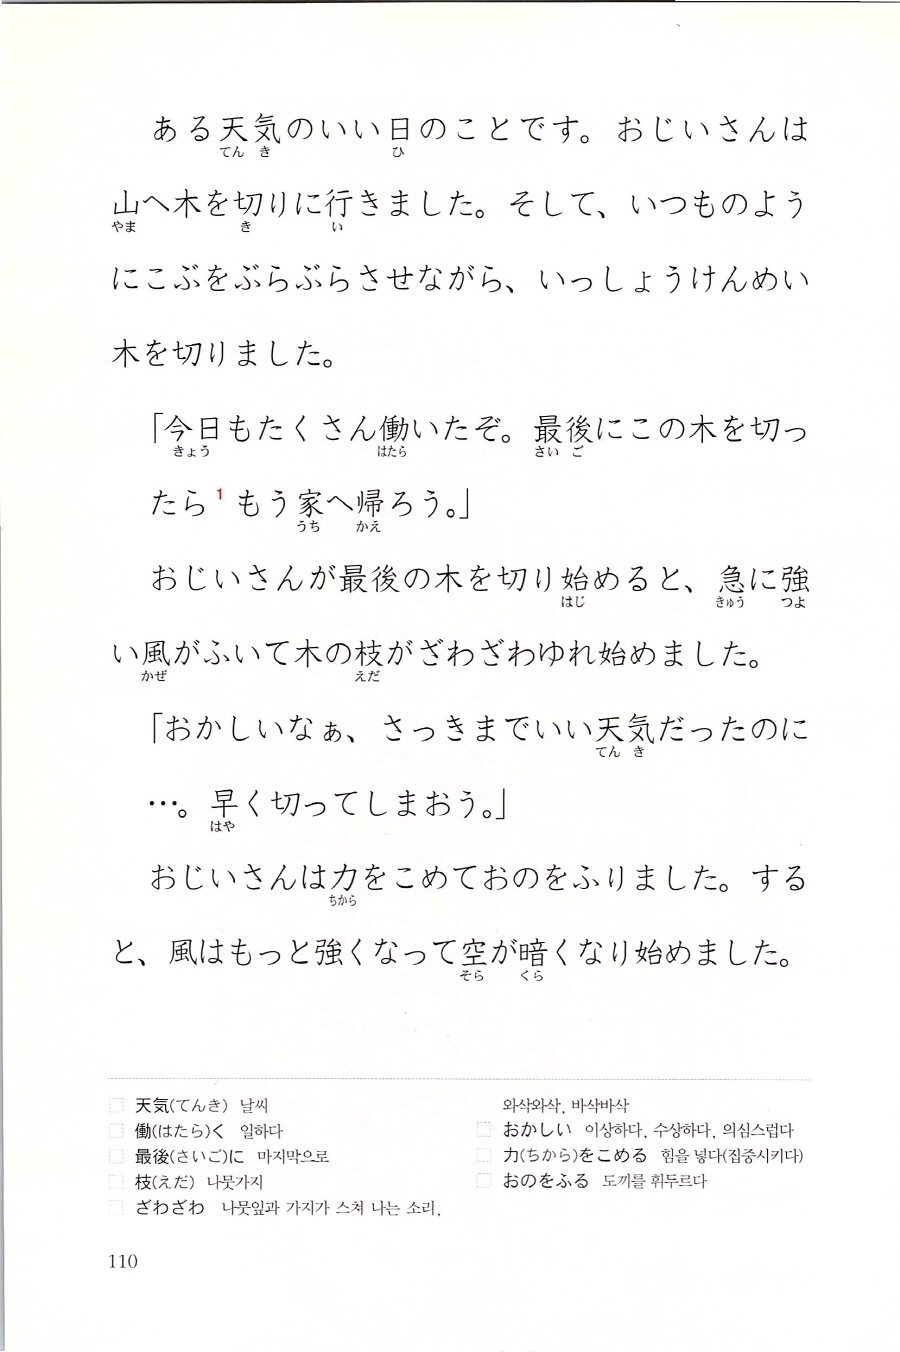 ある天気のいい日のことです。おじいさんは
てん き ひ
山へ木を切りに行きました。そして、いつものよう
やま き い
にこぶをぶらぶらさせながら、いっしょうけんめい
木を切りました。
「今日もたくさん働いたぞ。最後にこの木を切っ
きょう はたら さい ご
たら1 もう家へ帰ろう。」
うち かえ
おじいさんが最後の木を切り始めると、急に強
はじ きゅう つよ
い風がふいて木の枝がざわざわゆれ始めました。
かぜ えだ
「おかしいなぁ、さっきまでいい天気だったのに
てん き
…。早く切ってしまおう。」
はや
おじいさんは力をこめておのをふりました。する
ちから
と、風はもっと強くなって空が暗くなり始めました。
そら くら
天気(てんき) 날씨
働(はたら)く 일하다
最後(さいご)に 마지막으로
枝(えだ) 나뭇가지
ざわざわ 나뭇잎과 가지가 스쳐 나는 소리,
와삭와삭, 바삭바삭
おかしい 이상하다, 수상하다, 의심스럽다
力(ちから)をこめる 힘을 넣다(집중시키다)
おのをふる 도끼를 휘두르다
110